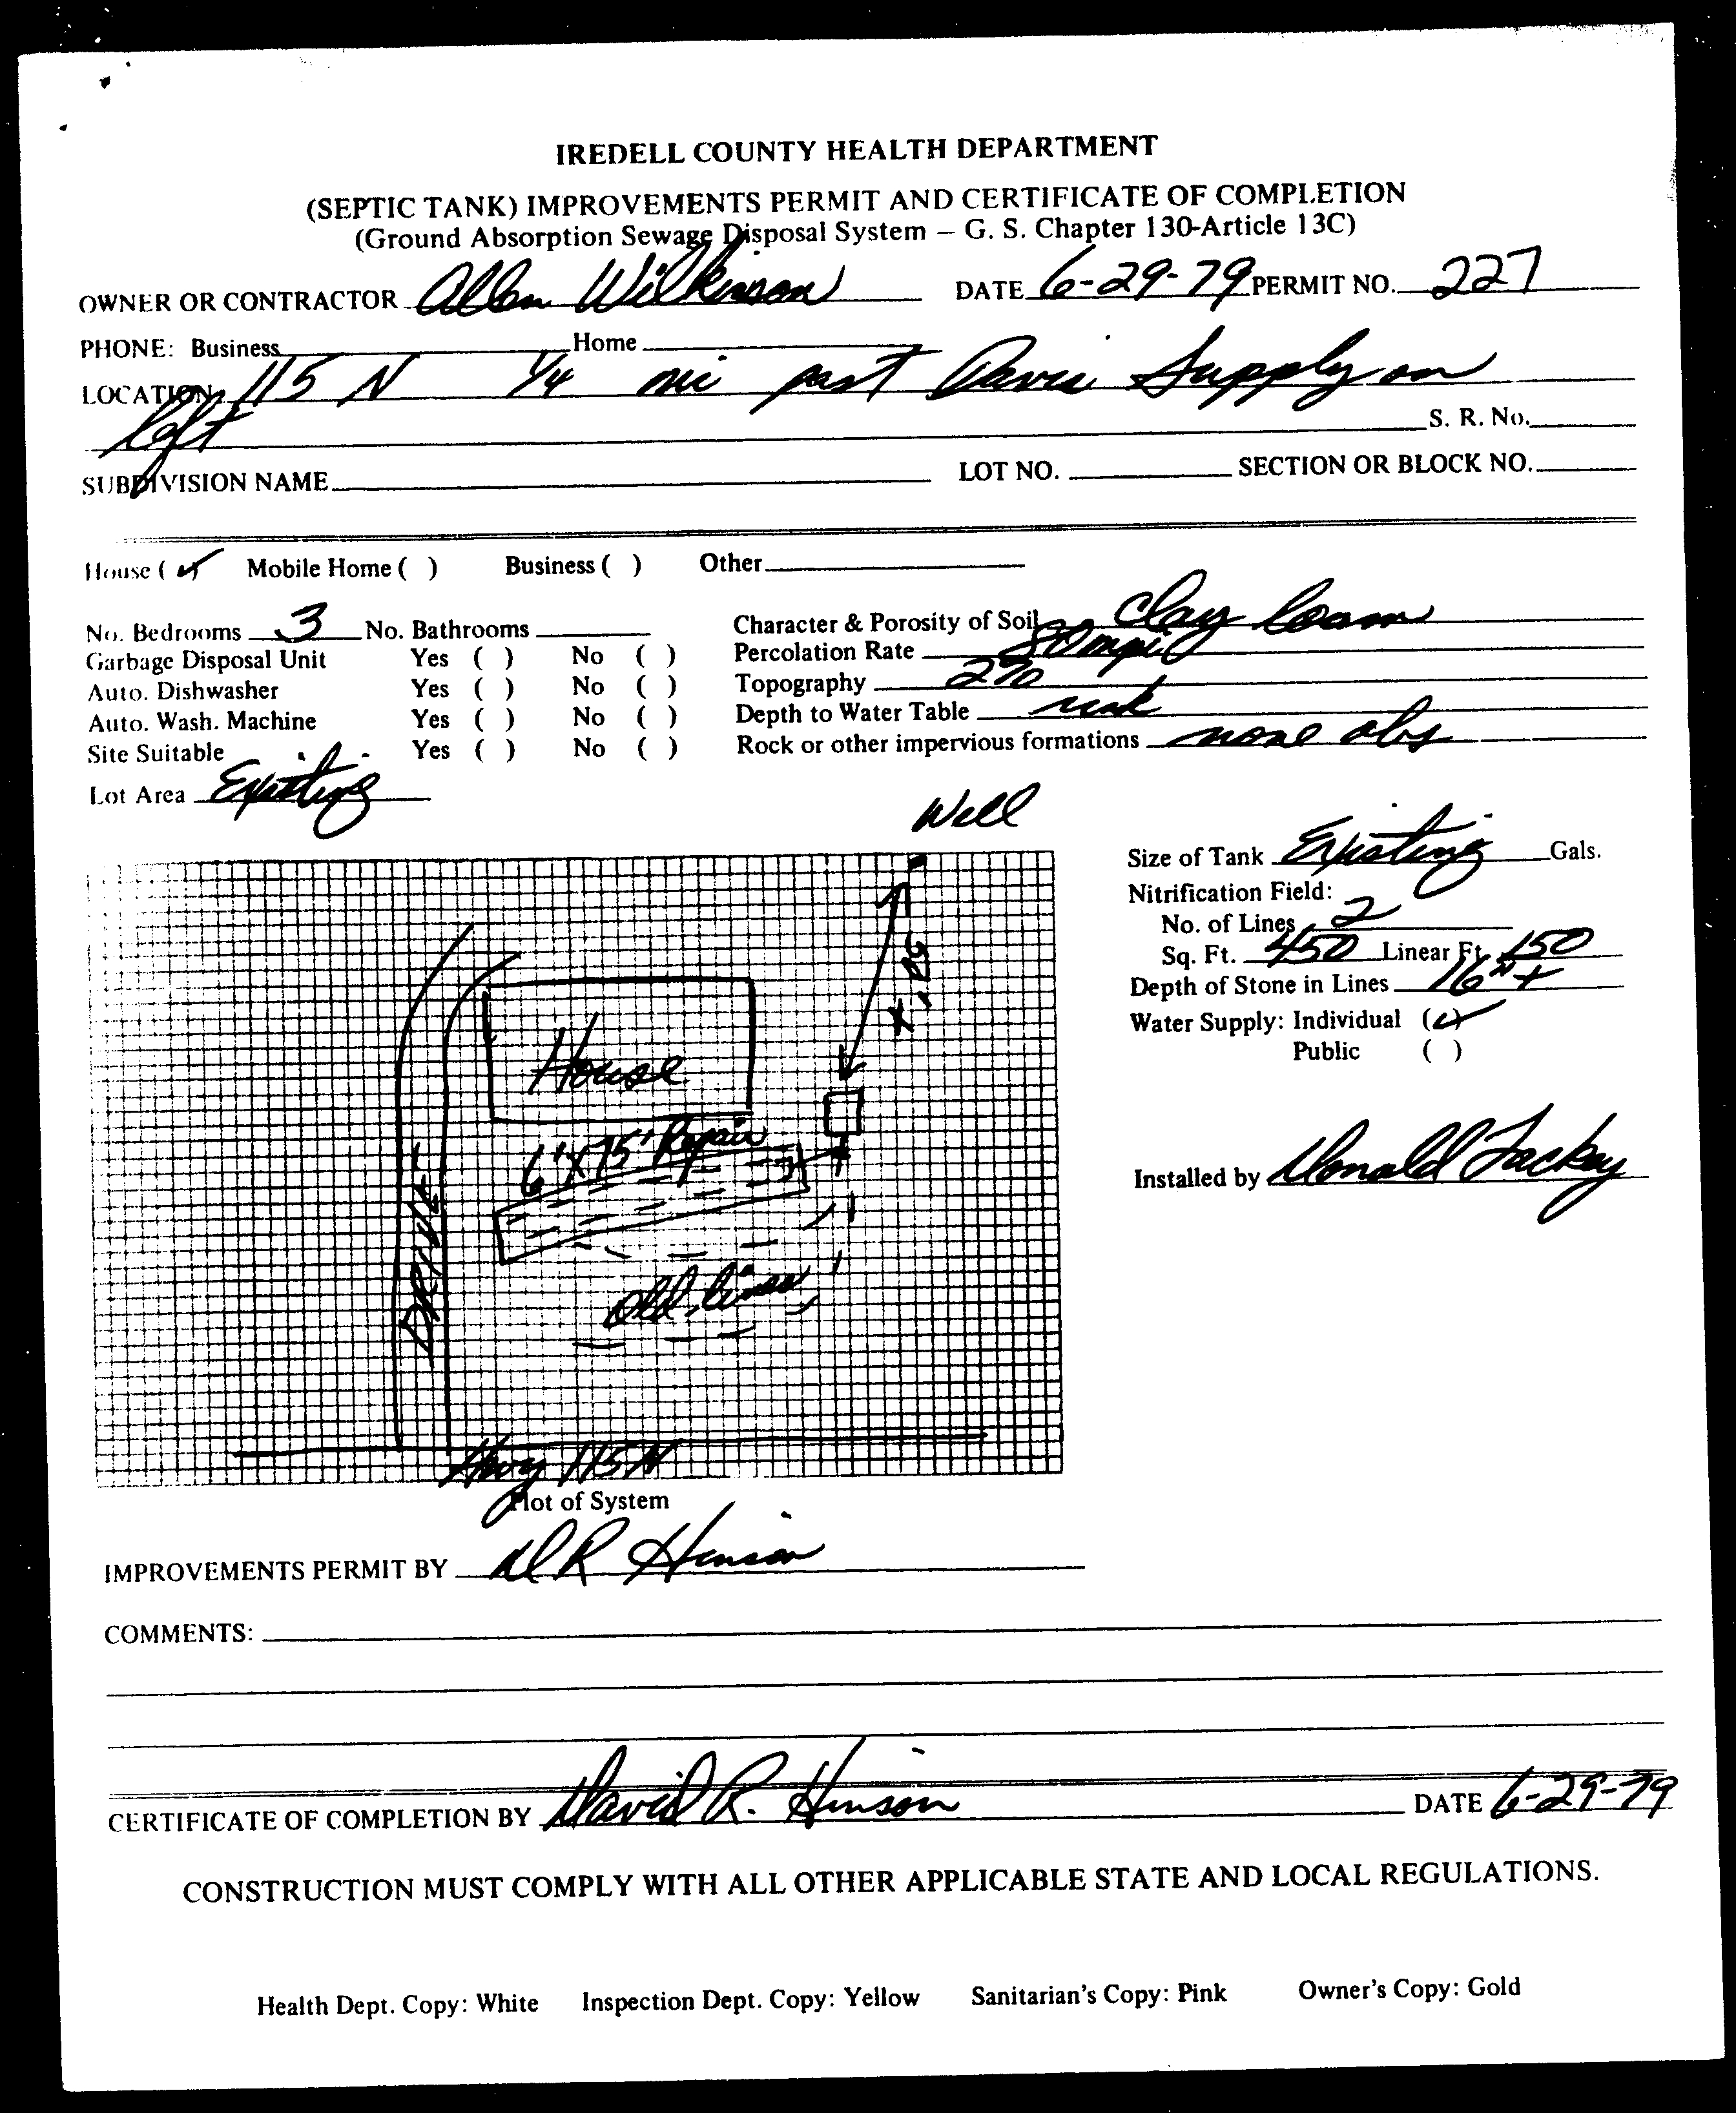 IREDELL COUNTY HEALTH DEPARTMENT
(SEPTIC TANK) IMPROVEMENTS PERMIT AND CERTIFICATE OF COMPLETION
(Ground Absorption Sewage Disposal System – G. S. Chapter 130-Article 13C)
OWNER OR CONTRACTOR Allen Wilkinson DATE 6-29-79 PERMIT NO. 227
PHONE: Business Home
LOCATION 115 N 1/4 mi past Davis Supply on
left S. R. No.
SUBDIVISION NAME LOT NO. SECTION OR BLOCK NO.
House (✓) Mobile Home ( ) Business ( ) Other
No. Bedrooms 3 No. Bathrooms Character & Porosity of Soil Clay loam
Garbage Disposal Unit Yes ( ) No ( ) Percolation Rate 80 mpi
Auto. Dishwasher Yes ( ) No ( ) Topography 2%
Auto. Wash. Machine Yes ( ) No ( ) Depth to Water Table
Site Suitable Yes ( ) No ( ) Rock or other impervious formations none obs
Lot Area Existing
Well
Size of Tank Existing Gals.
Nitrification Field:
No. of Lines 2
Sq. Ft. 450 Linear Ft. 150
Depth of Stone in Lines 16"+
Water Supply: Individual (✓)
Public ( )
House
6'X75' Repair
Installed by Donald Lackey
DRIVE
old lines
Hwy 115 N
Plot of System
IMPROVEMENTS PERMIT BY D R Hinson
COMMENTS:
CERTIFICATE OF COMPLETION BY David R. Hinson DATE 6-29-79
CONSTRUCTION MUST COMPLY WITH ALL OTHER APPLICABLE STATE AND LOCAL REGULATIONS.
Health Dept. Copy: White Inspection Dept. Copy: Yellow Sanitarian's Copy: Pink Owner's Copy: Gold